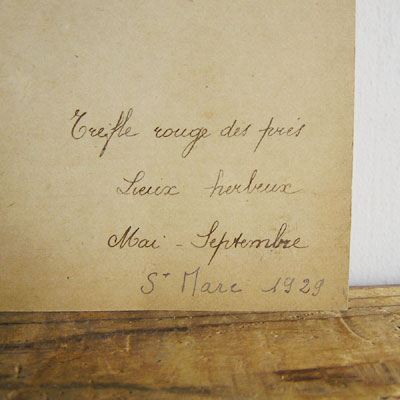 Trefle rouge des prés
Lieux herbeux
Mai - Septembre
St Marc 1929